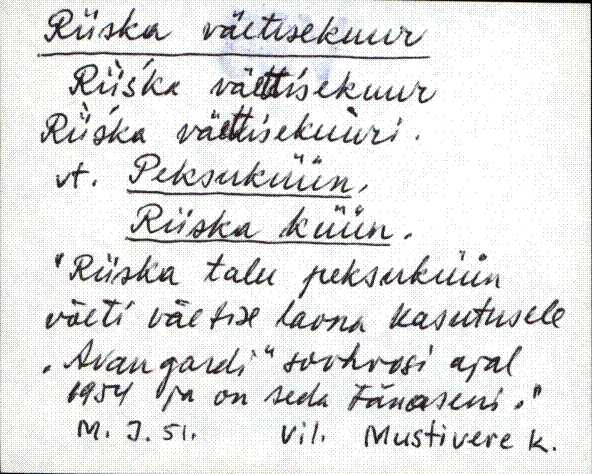 Riiska väetisekuur
Riiśka väettisekuur
Riiśka väettisekuùri.
vt. Peksuküün,
Riiska küün.
"Riiska talu peksuküün
võeti väetise laona kasutusele
„Avangardi" sovhoosi ajal
1954 ja on seda tänaseni."
M. J. 51. Vil. Mustivere k.